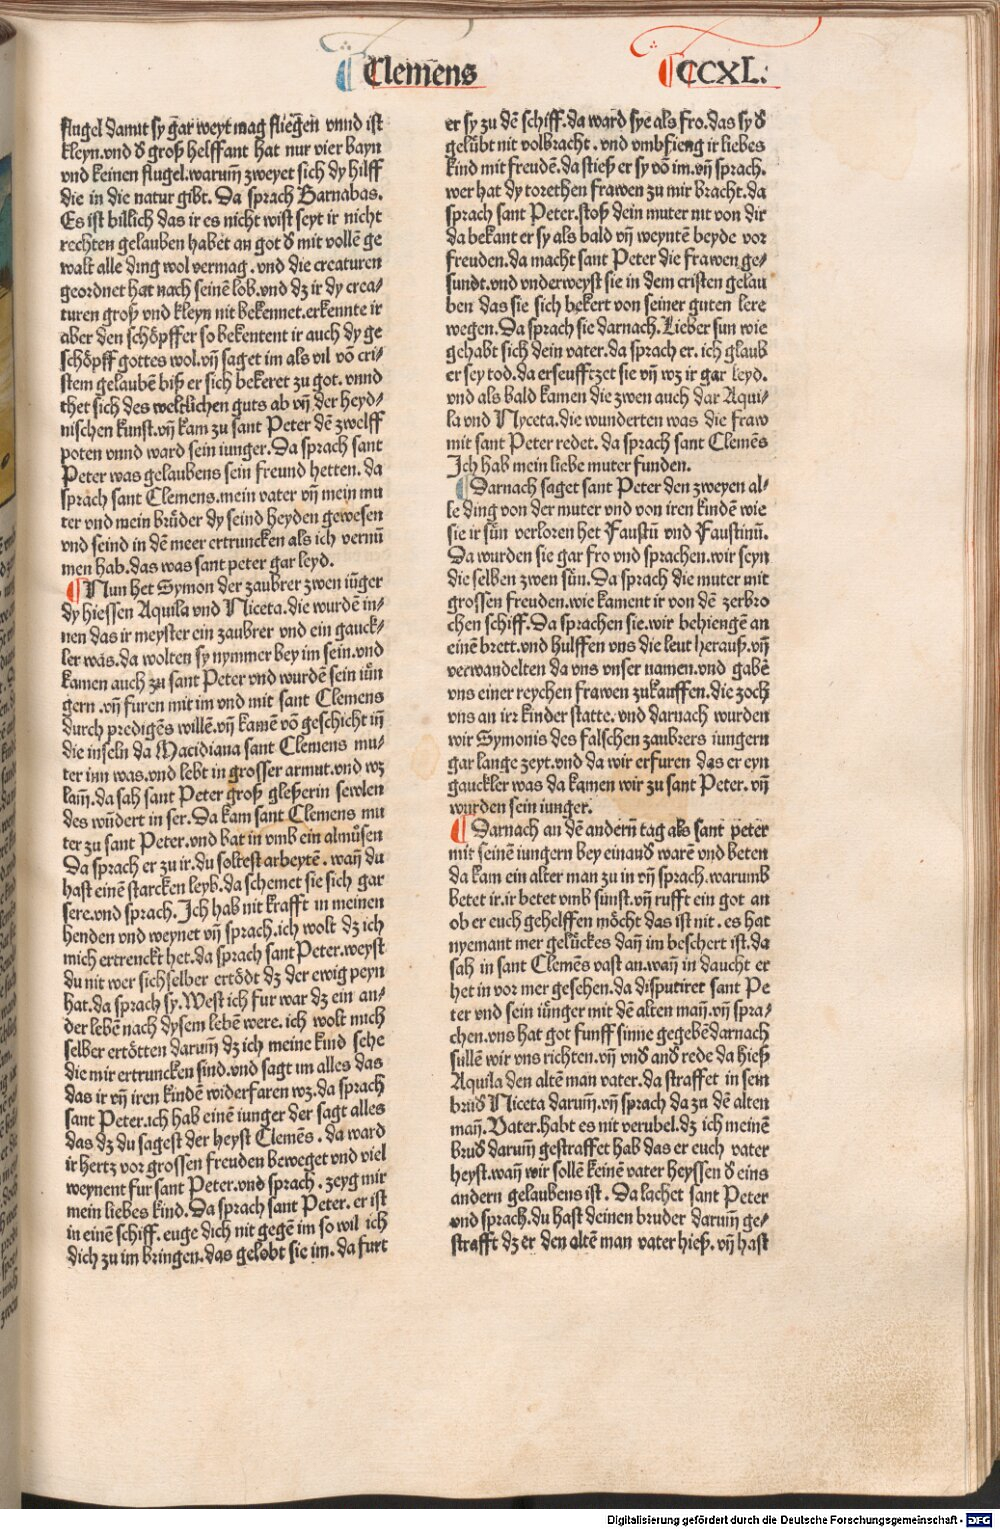 Clemēns
CCXL.
flugel damit sy gar weyt mag fliegen vnnd ist
kleyn.vnd d̕ groß helffant hat nur vier bayn
vnd keinen flugel.warum̄ zweyet sich dy hilff
die in die natur gibt. Da sprach Barnabas.
Es ist billich das ir es nicht wist seyt ir nicht
rechten gelauben habēt an got d̕ mit vollē ge
walt alle ding wol vermag. vnd die creaturen
geordnet hat nach seinē lob.vnd dz ir dy crea⸗
turen groß vnd kleyn nit bekennet.erkennte ir
aber den schöpffer so bekentent ir auch dy ge
schöpff gottes wol.vn̄ saget im als vil vō cri⸗
stem gelaubē biß er sich bekeret zu got. vnnd
thet sich des weltlichen guts ab vn̄ der heyd⸗
nischen kunst.vn̄ kam zu sant Peter dē zwelff
poten vnnd ward sein iunger. Da sprach sant
Peter was gelaubens sein freund hetten. da
sprach sant Clemens.mein vater vn̄ mein mu
ter vnd mein brüder dy seind heyden gewesen
vnd seind in dē meer ertruncken als ich vernū
men hab.das was sant peter gar leyd.
Nun het Symon der zaubrer zwen iūger
dy hiessen Aquila vnd Niceta.die wurdē in⸗
nen das ir meyster ein zaubrer vnd ein gauck⸗
ler was.da wolten sy nymmer bey im sein.vnd
kamen auch zu sant Peter vnd wurdē sein iün
gern .vn̄ furen mit im vnd mit sant Clemens
durch predigēs willē.vn̄ kamē vō geschicht in̄
die inseln da Macidiana sant Clemens mu⸗
ter inn was.vnd lebt in grosser armut.vnd wz
lam̄.da sah sant Peter groß gleßerin sewlen
des wūdert in ser. Da kam sant Clemens mu
ter zu sant Peter.vnd bat in vmb ein almüsen
Da sprach er zu ir.du soltest arbeytē. wan̄ du
hast einē starcken leyb.da schemet sie sich gar
sere.vnd sprach. Ich hab nit krafft in meinen
henden vnd weynet vn̄ sprach.ich wolt dz ich
mich ertrenckt het.da sprach sant Peter.weyst
du nit wer sichselber ertödt dz der ewig peyn
hat.da sprach sy.West ich fur war dz ein an⸗
der lebē nach dysem lebē were. ich wolt mich
selber ertötten darum̄ dz ich meine kind sehe
die mir ertruncken sind.vnd sagt im alles das
das ir vn̄ iren kindē widerfaren wz.da sprach
sant Peter.ich hab einē iunger der sagt alles
das dz du sagest der heyst Clemēs. da ward
ir hertz vor grossen freuden beweget vnd viel
weynent fur sant Peter.vnd sprach. zeyg mir
mein liebes kind. Da sprach sant Peter. er ist
in einē schiff. euge dich nit gegē im so wil ich
dich zu im bringen.das gelobt sie im. da furt
er sy zu dē schiff.da ward sye als fro.das sy d̕
gelübt nit volbracht. vnd vmbfieng ir liebes
kind mit freudē.da stieß er sy vō im.vn̄ sprach.
wer hat dy torethen frawen zu mir bracht.da
sprach sant Peter.stoß dein muter nit von dir
da bekant er sy als bald vn̄ weyntē beyde vor
freuden.da macht sant Peter die frawen ge⸗
sundt.vnd vnderweyst sie in dem cristen gelau
ben das sie sich bekert von seiner guten lere
wegen. Da sprach sie darnach. Lieber sun wie
gehabt sich dein vater.da sprach er. ich glaub
er sey tod.da erseufftzet sie vn̄ wz ir gar leyd.
vnd als bald kamen die zwen auch dar Aqui⸗
la vnd Nyceta.die wunderten was die fraw
mit sant Peter redet. da sprach sant Clemēs
Ich hab mein liebe muter funden.
Darnach saget sant Peter den zweyen al⸗
le ding von der muter vnd von iren kindē wie
sie ir sün verloren het Faustū vnd Faustinū.
Da wurden sie gar fro vnd sprachen.wir seyn
die selben zwen sün. Da sprach die muter mit
grossen freuden.wie kament ir von dē zerbro
chen schiff. Da sprachen sie.wir behiengē an
einē brett.vnd hulffen vns die leut herauß.vn̄
verwandelten da vns vnser namen.vnd gabē
vns einer reychen frawen zukauffen.die zoch
vns an irr kinder statte. vnd darnach wurden
wir Symonis des falschen zaubrers iungern
gar lange zeyt.vnd da wir erfuren das er eyn
gauckler was da kamen wir zu sant Peter. vn̄
wurden sein iunger.
Darnach an dē andern̄ tag als sant peter
mit seinē iungern bey einand̕ warē vnd beten
da kam ein alter man zu in vn̄ sprach.warumb
betet ir.ir betet vmb sünst.vn̄ rufft ein got an
ob er euch gehelffen möcht das ist nit. es hat
nyemant mer gelückes dan̄ im beschert ist.da
sah in sant Clemēs vast an.wan̄ in daucht er
het in vor mer geschen.da disputiret sant Pe
ter vnd sein iünger mit dē alten man̄.vn̄ spra⸗
chen.vns hat got funff sinne gegebē darnach
süllē wir vns richten.vn̄ vnd̕ and̕ rede da hieß
Aquila den altē man vater.da straffet in sein
brud̕ Niceta darum̄.vn̄ sprach da zu dē alten
man̄. Vater.habt es nit verubel.dz ich meinē
brud̕ darum̄ gestraffet hab das er euch vater
heyst.wan̄ wir sollē keinē vater heyssen d̕ eins
andern gelaubens ist. Da lachet sant Peter
vnd sprach.du hast deinen bruder darum̄ ge⸗
strafft dz er den altē man vater hieß. vn̄ hast
Digitalisierung gefördert durch die Deutsche Forschungsgemeinschaft - DFG